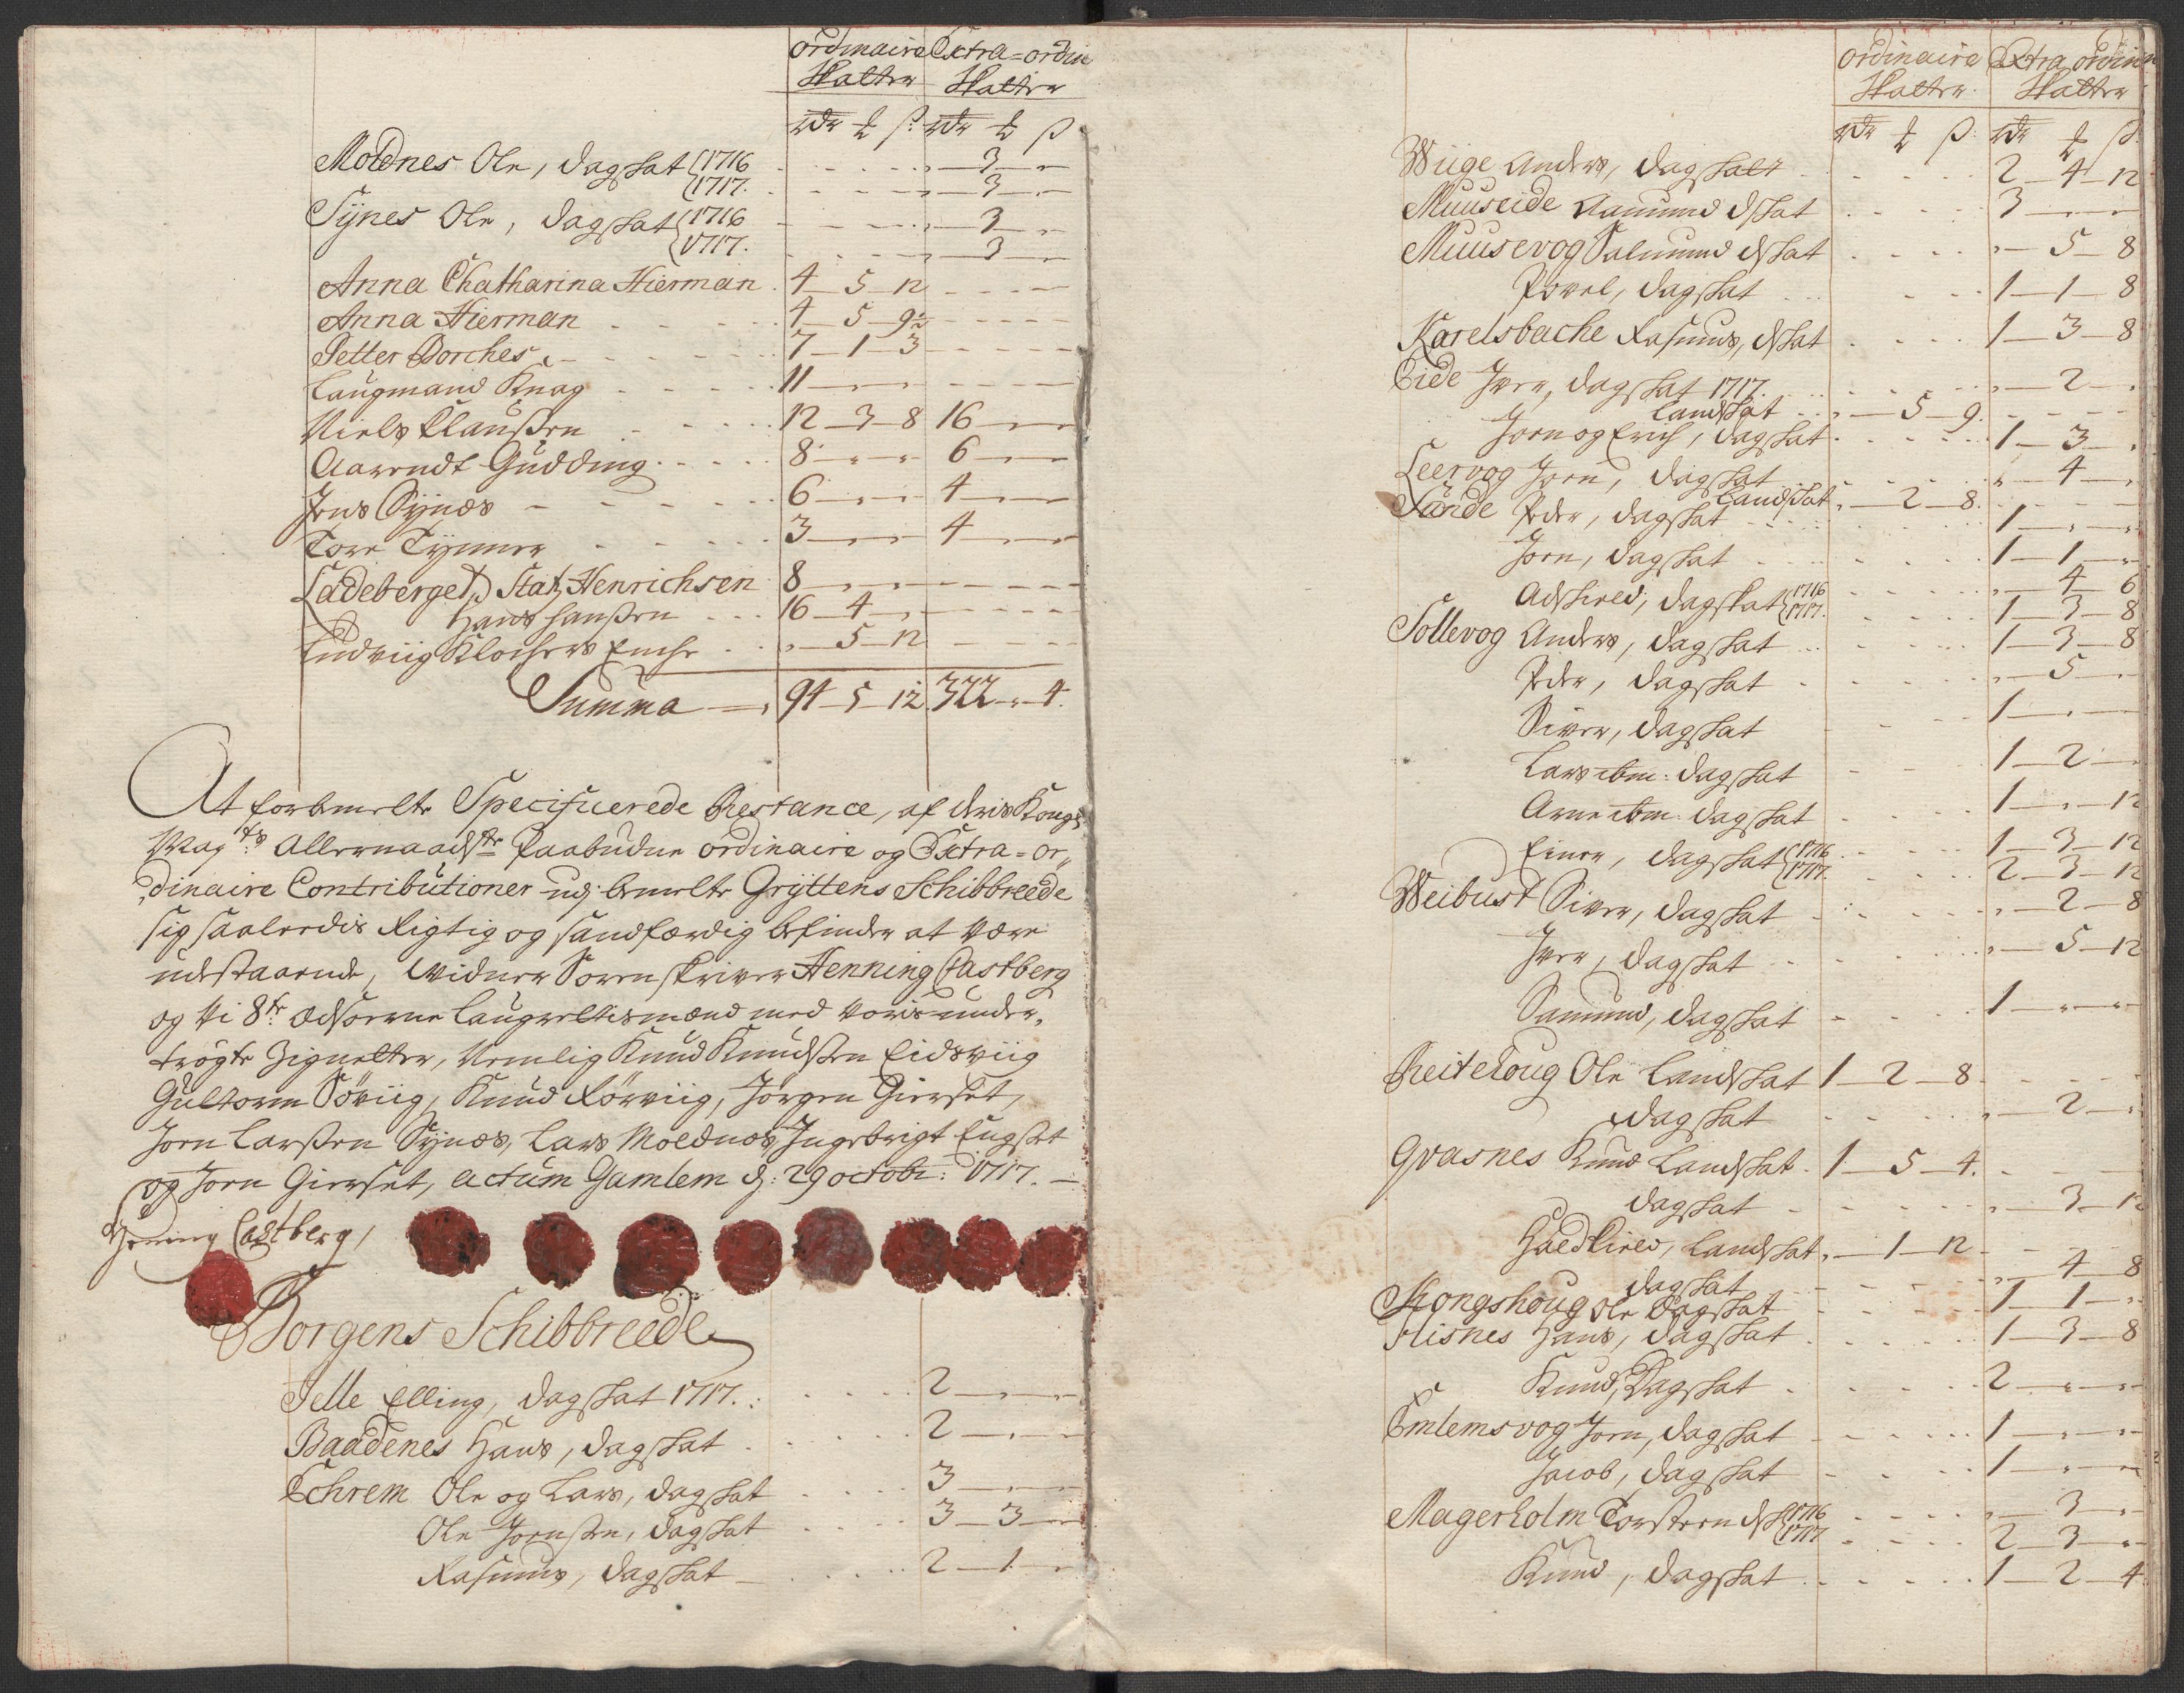 ordinaire Extra=ordin
Skatter Skatter
rdr ₰ ß: rdr ₰ ß
Moldnes Ole, dagskat 1716 - 3 -
1717. - 3 -
Synes Ole, dagskat 1716 - 3 -
1717. - 3 -
Anna Chatharina Hierman. 4 - 5 - 12
Anna Hierman 4 - 5 - 9½
Petter Dorches 7 - 1 - 3
Laugmand Knag 11 - -
Niels Claussen 12 - 3 - 8 16 - -
Aarendt Gudding 8 - - 6 - -
Jens Synes 6 - - 4 - -
Tore Tynner 3 - - 4 - -
Ladeberget, Statz Henrichsen 8 - -
Hans Hanssen 16 - 4 -
Ludviig Klochers Enche - 5 - 12
Summa 94 - 5 - 12 322 - 4.
At forbemelte Specificerede Restance, af deris Kongl
Mayts: Allernaadste Paabudne ordinaire og Extra=or
dinaire Contributioner udj bemelte Gryttens Schibbreede
sig saaledis Rigtig og sandfærdig befinder at være
udestaaende, Vidner Sorenskriver Henning Castberg
og Vi 8te Edsorne Laugrettismænd med voris under
trögte Zignetter, Nemlig Knud Knudsen Eidsviig
Gultorm Söviig, Knud Rörviig, Jörgen Gierset,
Jorn Larssen Synes, Lars Moldnes, Ingebrigt Engset
og Jorn Gierset, actum Gamlem d: 29 octobr: 1717. -
Henning Castberg
Borgens Schibbreede
Jelle Elling, dagskat 1717. 2 - -
Baadenes Hans, dagskat 2 - -
Schrem Ole og Lars, dagskat 3 - -
Ole Jornsen, dagskat 3 - 3 -
Rasmus, dagskat 2 - 1 -
ordinaire Extra ordin
Skatter. Skatter
rdr ₰ ß: rdr ₰ ß
Wiige Anders, dagskatt 2 - 4 - 12
Muuseide Aamund dskat 3 - -
Muusevog Salmund dskat - 5 - 8
Povel, dagskat 1 - 1 - 8
Karelsbache Rasmus, dskat 1 - 3 - 8
Eide Iver, dagskat 1717. - 2 -
Landskat - 5 - 9.
Jorn og Erich, dagskat 1 - 3 -
Leervog Jorn, dagskat - 4 -
Landskat - 2 - 8.
Sande Peder, dagskat 1 - -
Jorn, dagskat 1 - 1 -
Adskired, dagskat 1716 - 4 - 6
1717. 1 - 3 - 8
Sollevog Anders, dagskat 1 - 3 - 8
Peder, dagskat - 5 -
Siver, dagskat 1 - -
Lars ibm: dagskat 1 - 2 -
Arne ibm: dagskat 1 - - 12
Einer, dagskat 1716 1 - 3 - 12
1717. 2 - 3 - 12
Weibust Siver, dagskat - 2 - 8
Iver, dagskat - 5 - 12
Samund, dagskat 1 - -
Reitehoug Ole Landskat 1 - 2 - 8.
dagskat - 2 -
Qvasnes Knud Landskat 1 - 5 - 4.
dagskat - 3 - 12
Haedkired, Landskat - 1 - 12
dagskat - 4 - 8
Kongshoug Ole dagskat 1 - 1 -
Flisnes Hans, dagskat 1 - 3 - 8
Knud, Dagskat 2 - -
Emlemsvog Jorn, dagskat 1 - -
Jacob, dagskat 1 - -
Magerholm Torsteen dsk 1716 - 3 -
1717 2 - 3 -
Knud, dagskat 1 - 2 - 4